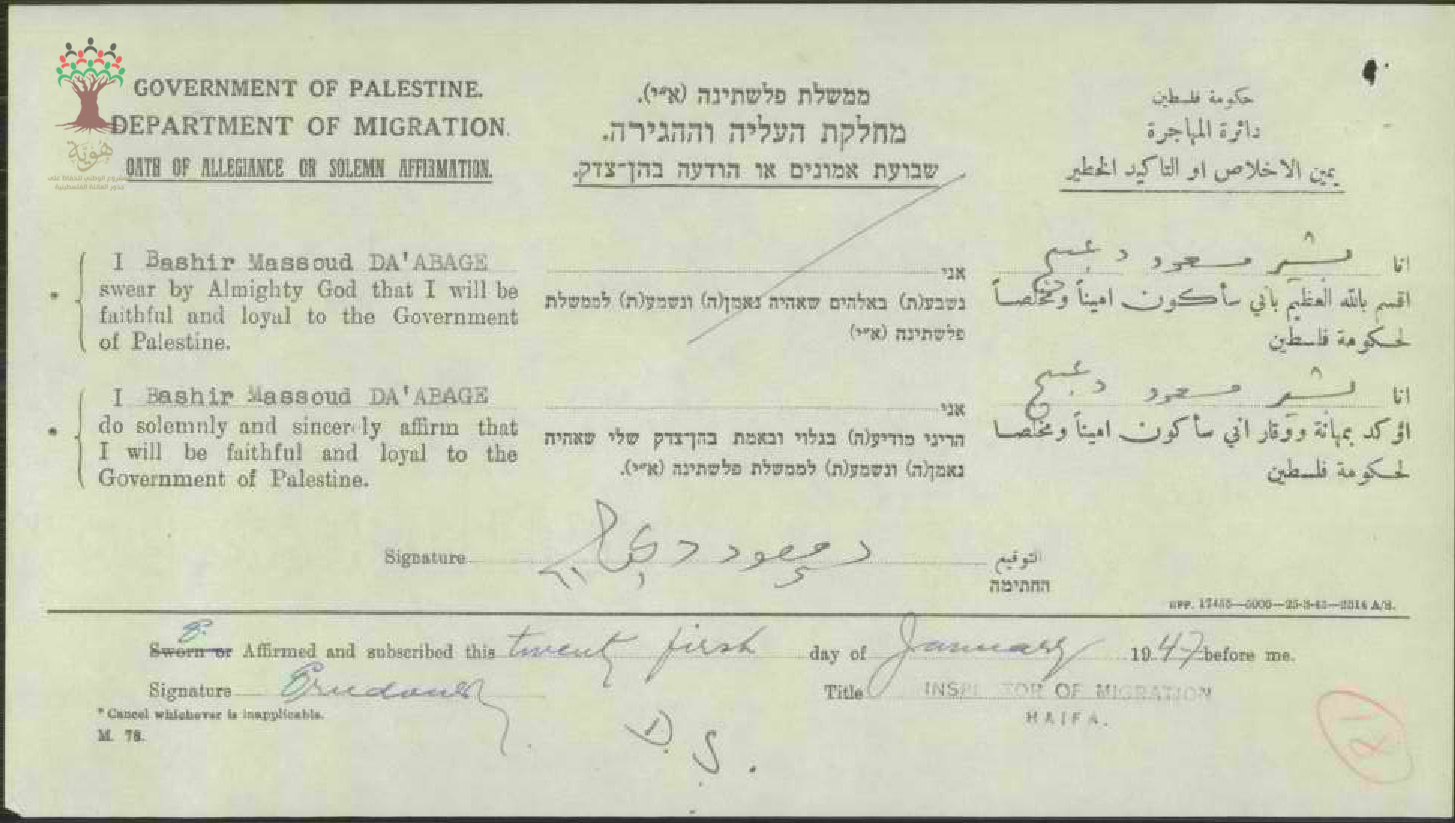 GOVERNMENT OF PALESTINE.
DEPARTMENT OF MIGRATION.
OATH OF ALLEGIANCE OR SOLEMN AFFIRMATION.
هوية
ممשלת פלשתינה (א״י).
מחלקת העליה וההגירה.
שבועת אמונים או הודעה בהן־צדק.
حكومة فلسطين
دائرة المهاجرة
يمين الاخلاص او التاكيد الخطير
I Bashir Massoud DA'ABAGE
swear by Almighty God that I will be
faithful and loyal to the Government
of Palestine.
אני
נשבע(ת) באלהים שאהיה נאמן(ה) ונשמע(ת) לממשלת
פלשתינה (א״י)
انا بشير مسعود
اقسم بالله العظيم باني سأكون اميناً ومخلصاً
لحكومة فلسطين
I Bashir Massoud DA'ABAGE
do solemnly and sincerely affirm that
I will be faithful and loyal to the
Government of Palestine.
אני
הריני מודיע(ה) בגלוי ובאמת בהן־צדק שלי שאהיה
נאמן(ה) ונשמע(ת) לממשלת פלשתינה (א״י).
انا بشير مسعود
اؤكد بمهانة ووقار اني سأكون اميناً ومخلصا
لحكومة فلسطين
Signature
التوقيع
החתימה
GPP. 17455—5000—25-3-45—2314 A/S.
Sworn or Affirmed and subscribed this twenty first day of January 1947 before me.
Signature Title INSPECTOR OF MIGRATION
HAIFA.
* Cancel whichever is inapplicable.
M. 78.
D. S.
21